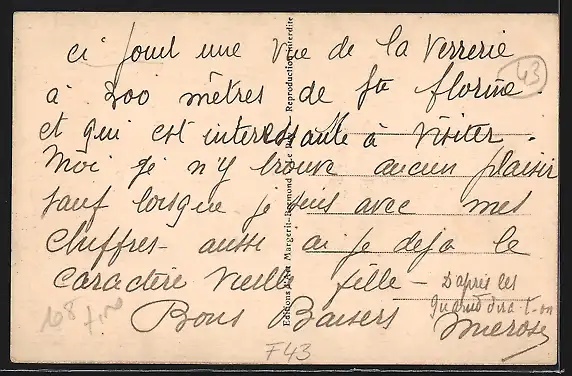 ci joint une vue de la Verrerie
43
à 300 mètres de Ste florine
et qui est interessante à visiter.
Moi je n'y trouve aucun plaisir
sauf lorsque je suis avec mes
chiffres - aussi ai je deja le
caractère vieille fille - D'après les
quand dira-t-on
Bons Baisers
F43
Editions Margerit- Reproduction interdite